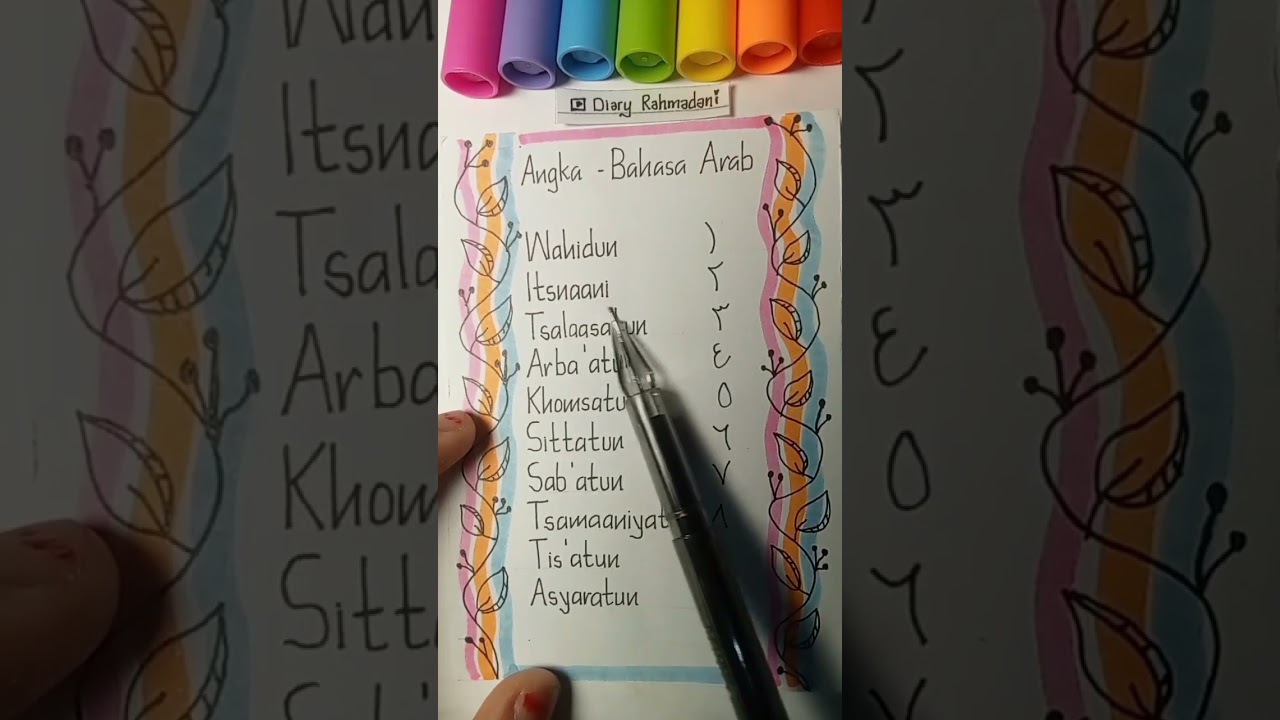 Diary Rahmadani
Angka - Bahasa Arab
Wahidun ١
Itsnaani ٢
Tsalaasatun ٣
Arba'atu ٤
Khomsatu ٥
Sittatun ٦
Sab'atun ٧
Tsamaaniyat ٨
Tis'atun
Asyaratun